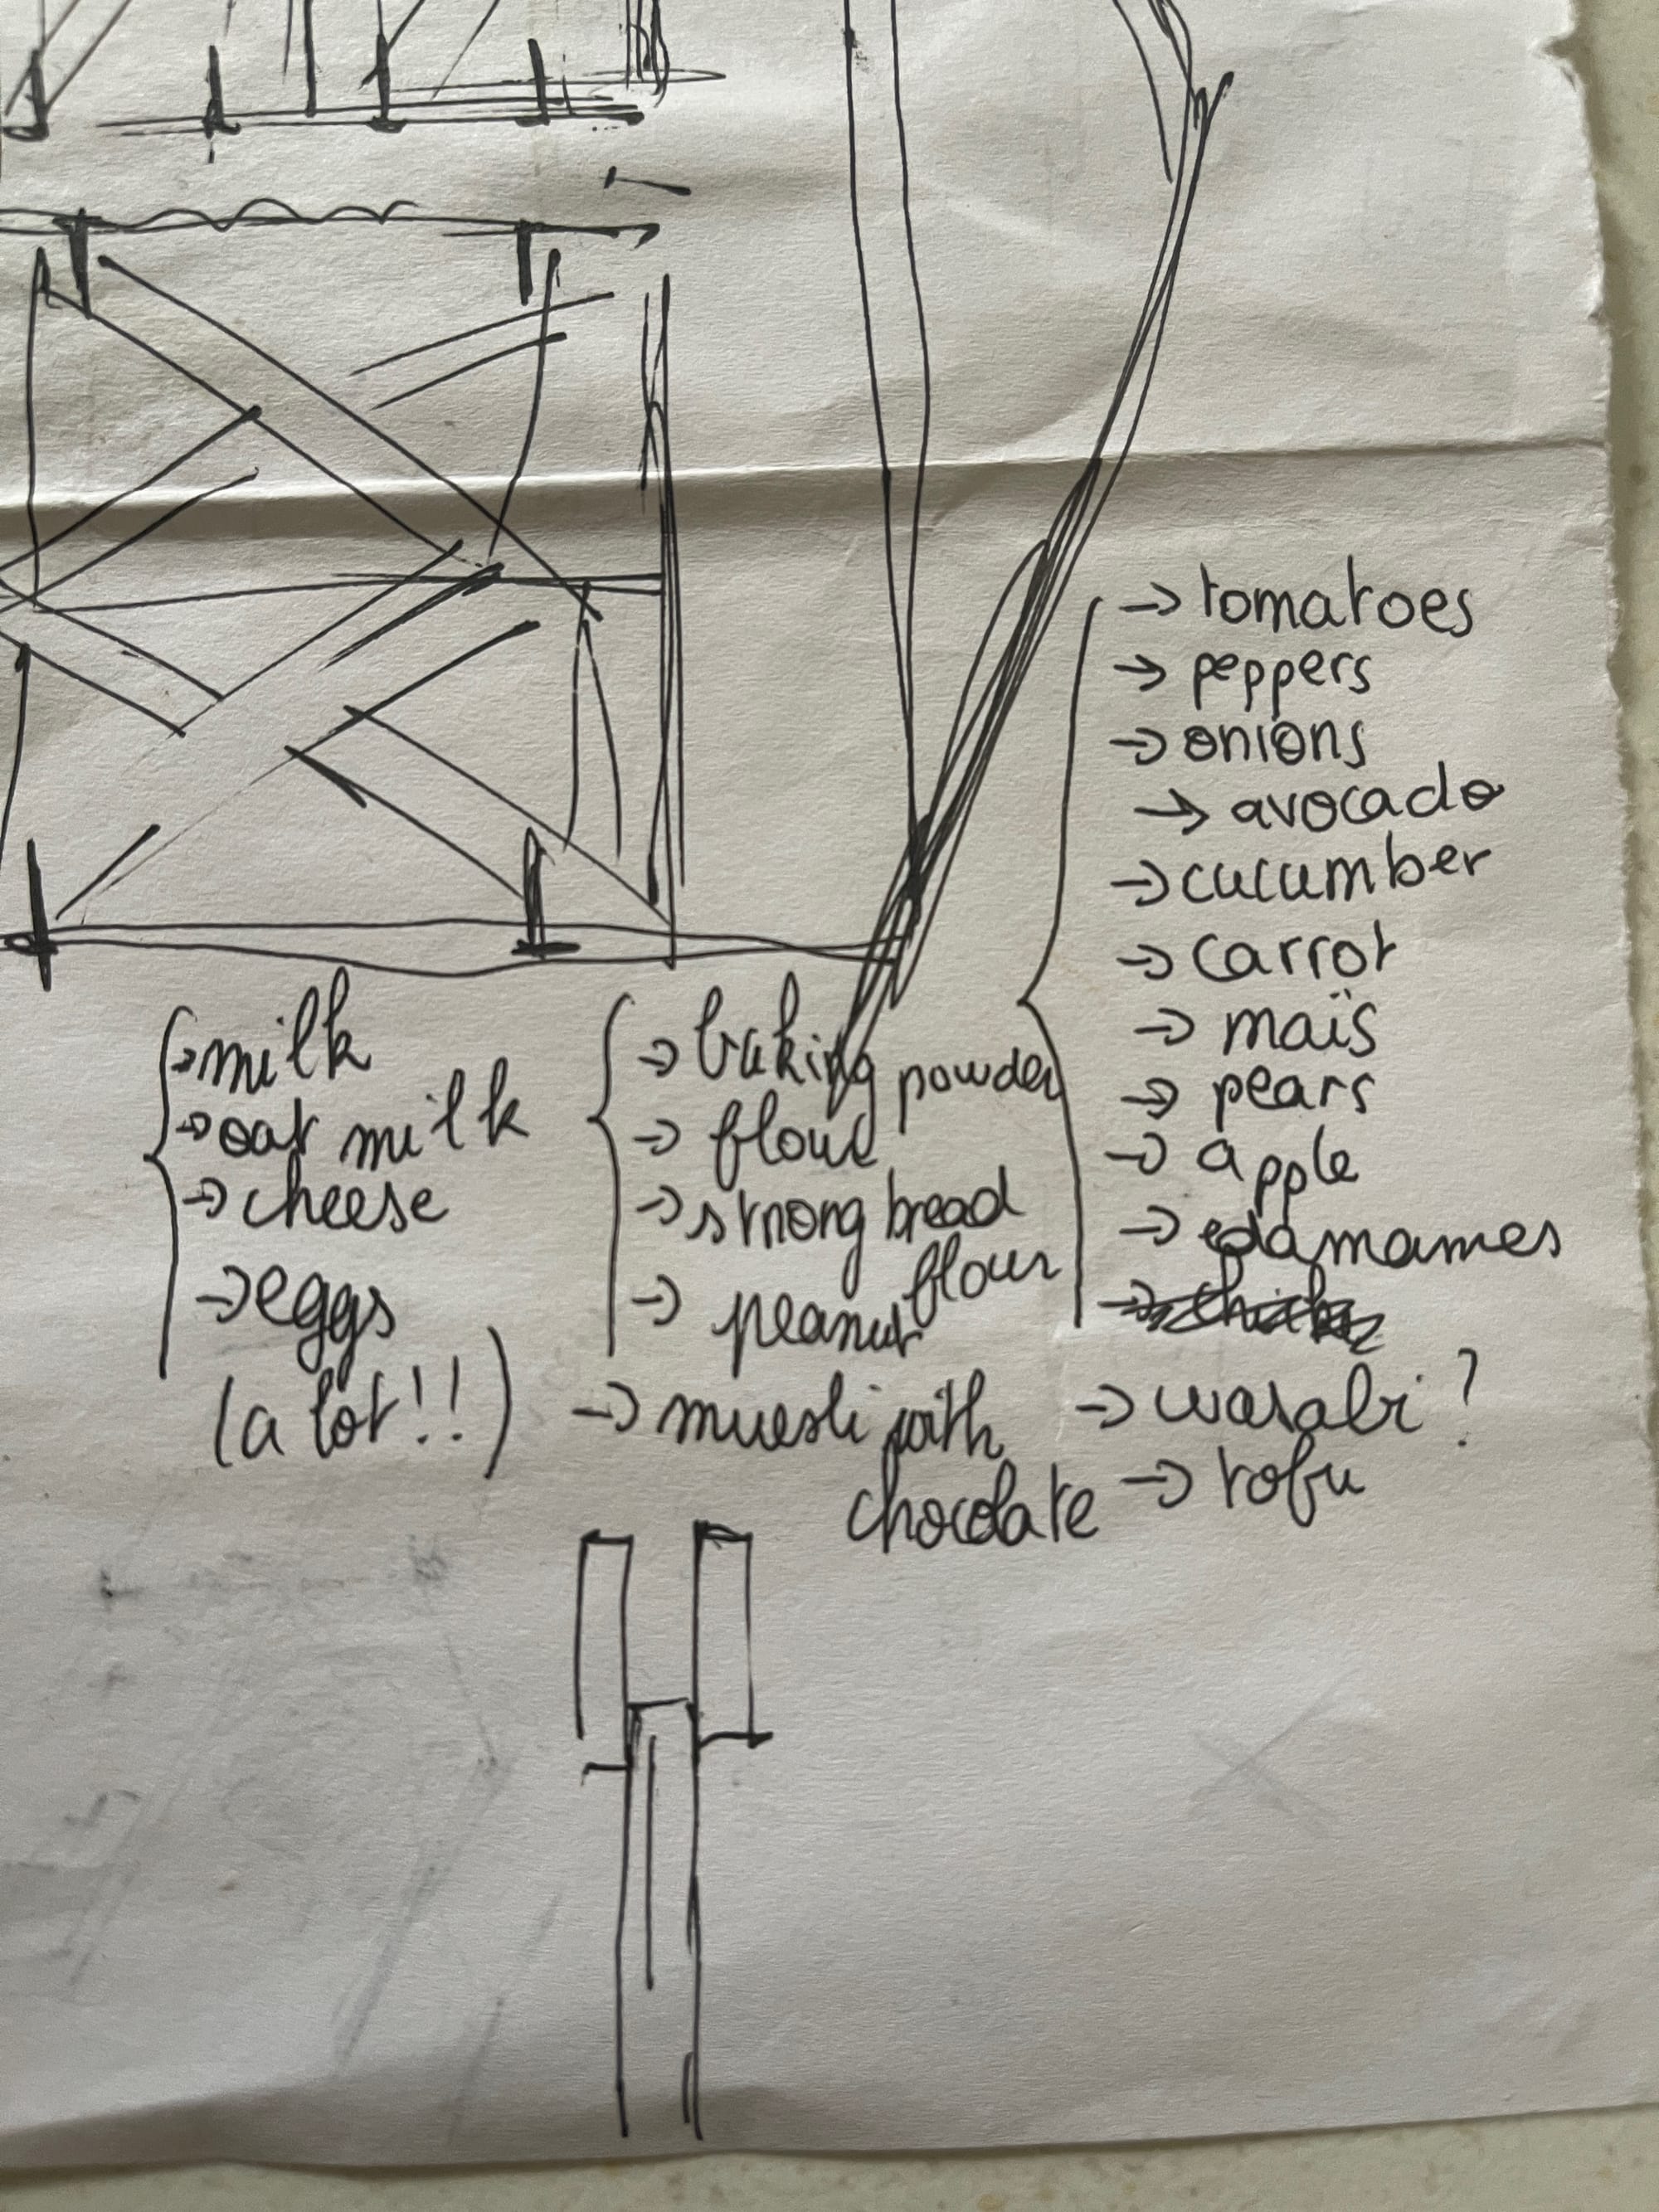 → milk
→ oat milk
→ cheese
→ eggs
(a lot!!)
→ baking powder
→ flour
→ strong bread
flour
→ peanut
→ muesli with
chocolate
→ tomatoes
→ peppers
→ onions
→ avocado
→ cucumber
→ carrot
→ maïs
→ pears
→ apple
→ edamames
→ wasabi?
→ tofu